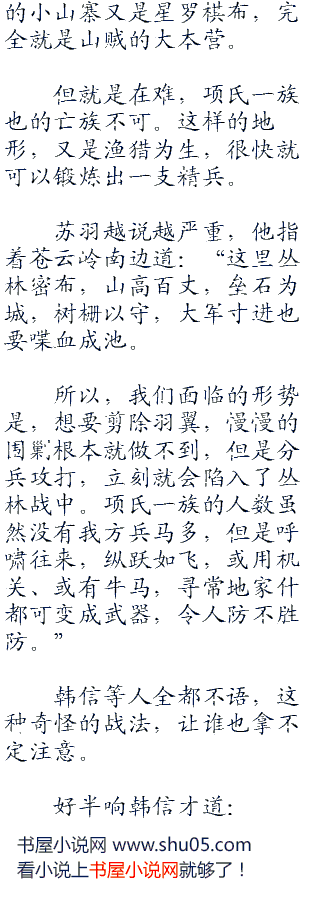 的小山寨又是星罗棋布，完
全就是山贼的大本营。
但就是在难，项氏一族
也的亡族不可。这样的地
形，又是渔猎为生，很快就
可以锻炼出一支精兵。
苏羽越说越严重，他指
着苍云岭南边道：“这里丛
林密布，山高百丈，垒石为
城，树栅以守，大军寸进也
要喋血成池。
所以，我们面临的形势
是，想要剪除羽翼，慢慢的
围剿根本就做不到，但是分
兵攻打，立刻就会陷入了丛
林战中。项氏一族的人数虽
然没有我方兵马多，但是呼
啸往来，纵跃如飞，或用机
关、或有牛马，寻常地家什
都可变成武器，令人防不胜
防。”
韩信等人全都不语，这
种奇怪的战法，让谁也拿不
定注意。
好半响韩信才道：
书屋小说网 www.shu05.com
看小说上书屋小说网就够了！